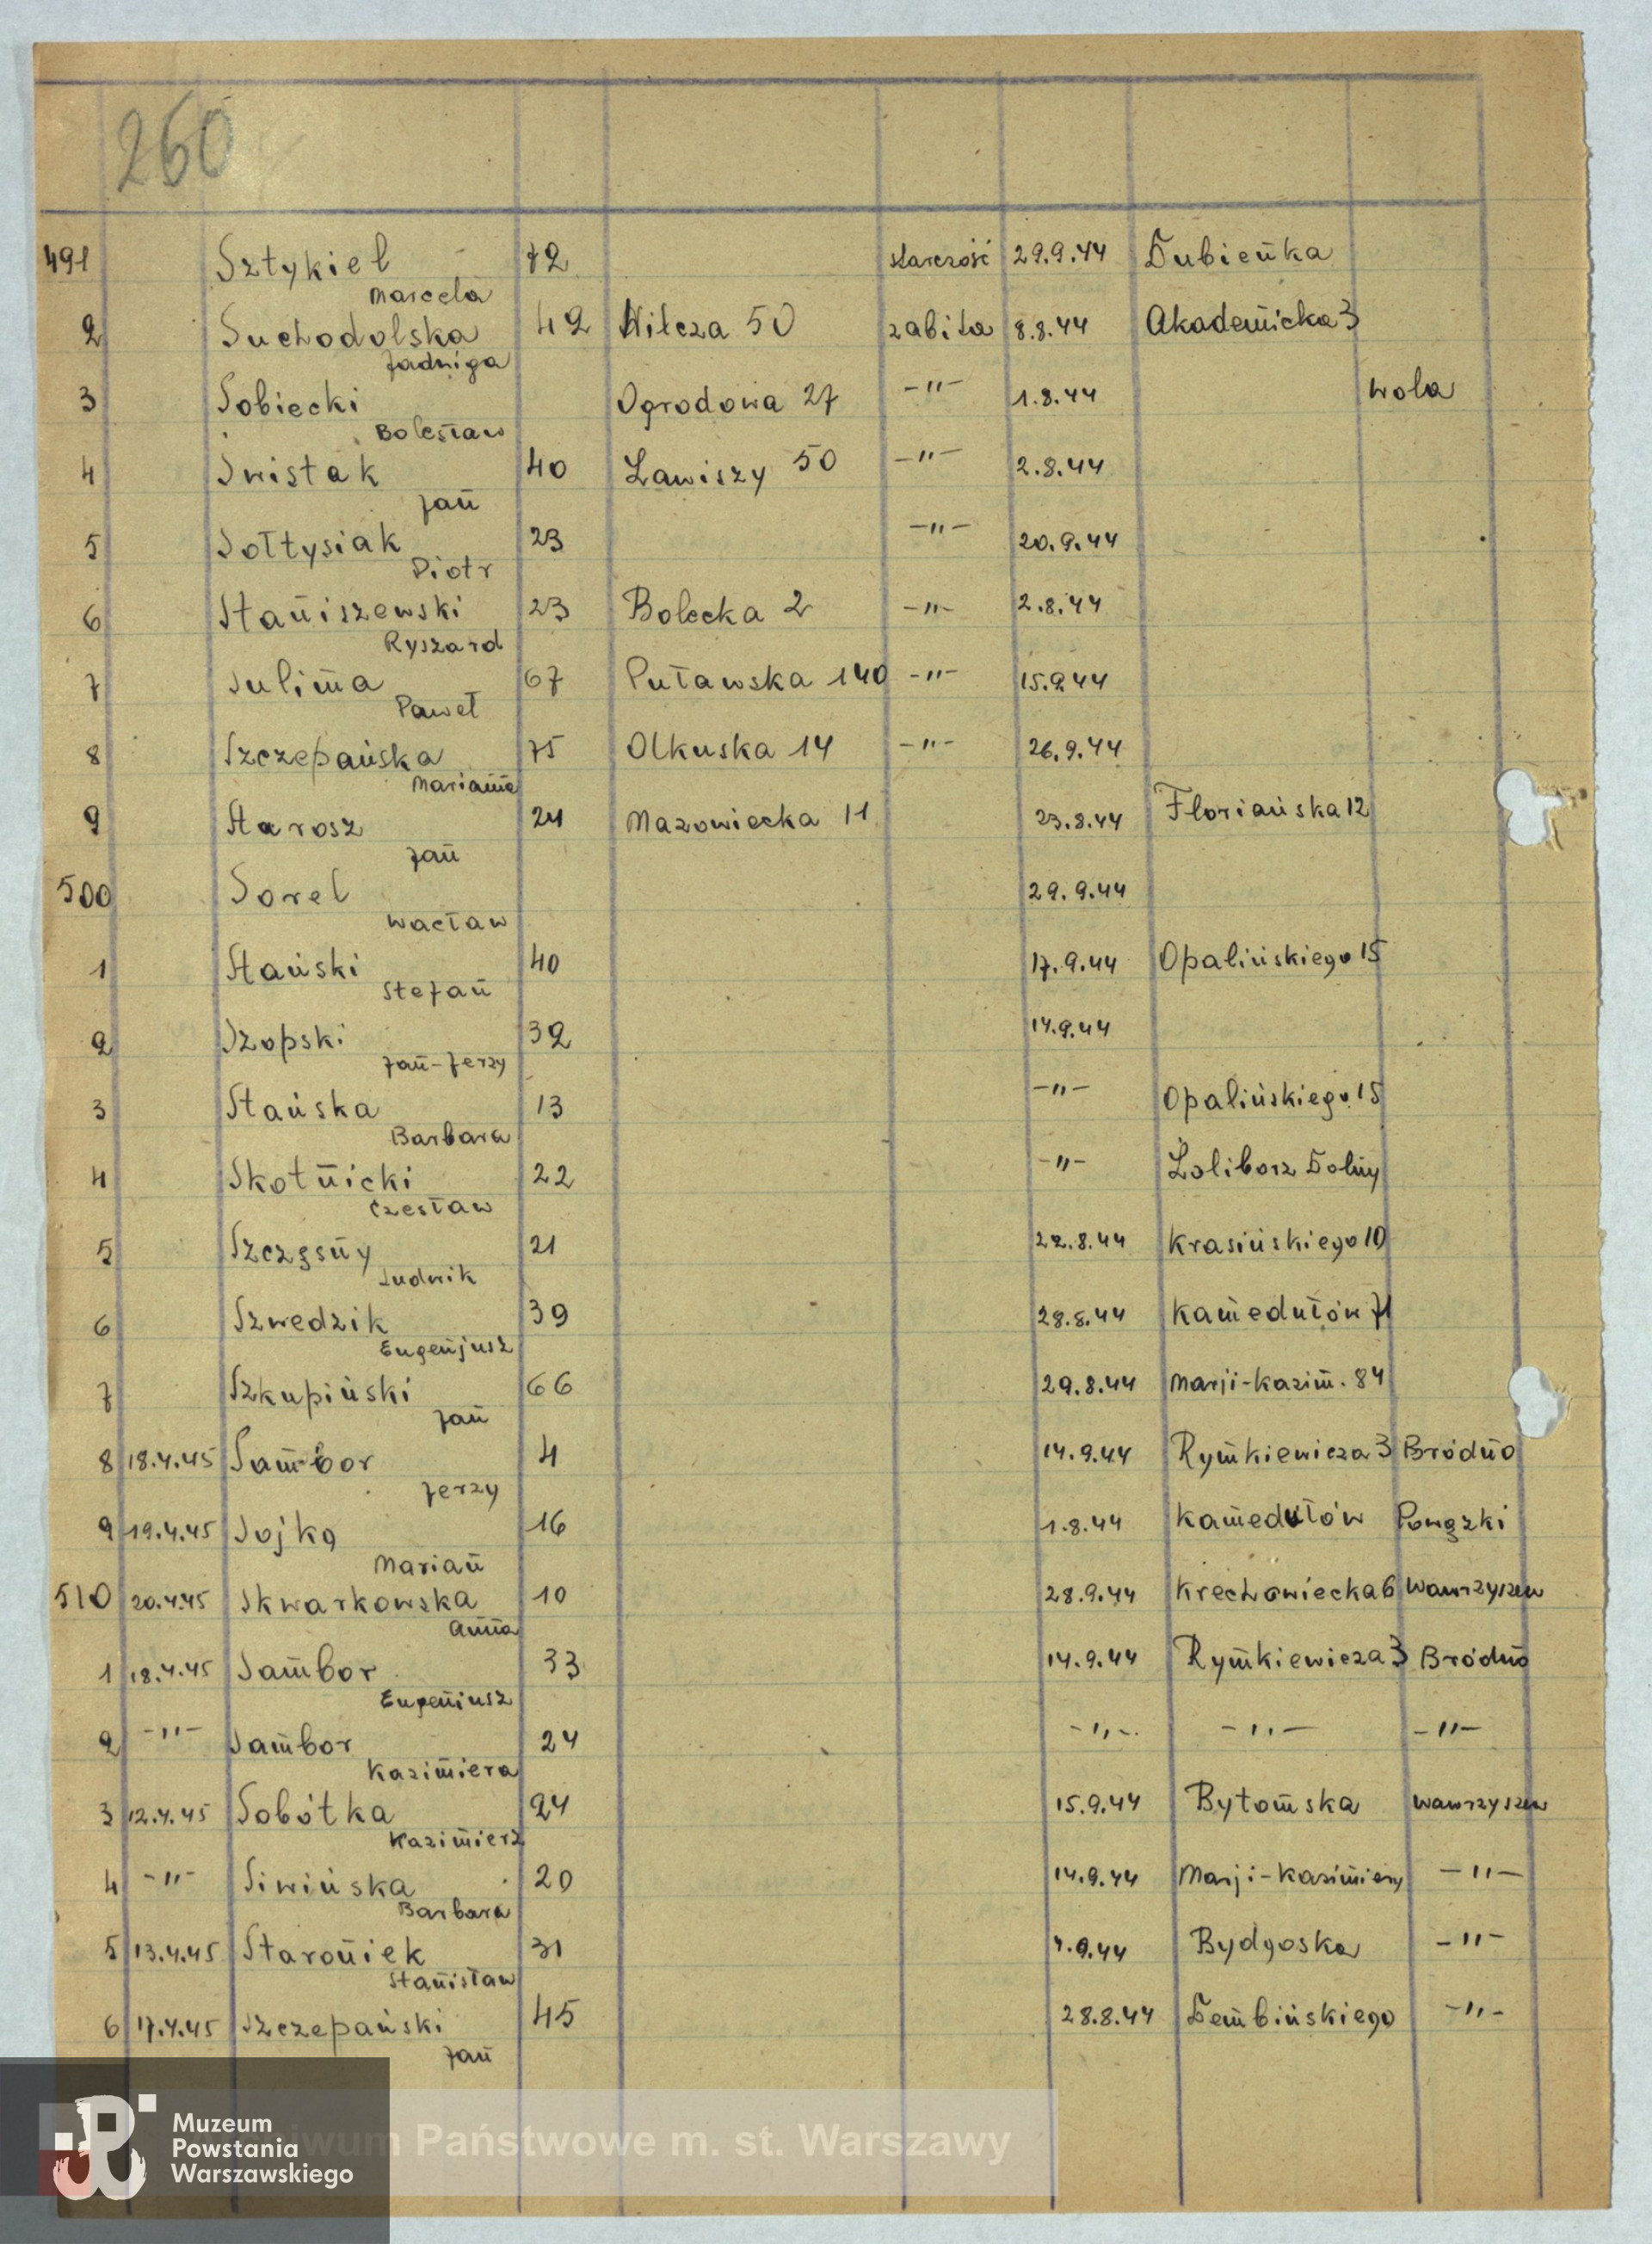 260
491 Sztykiel 72 starczość 29.9.44 Dubieńka
Marcela
2 Suchodolska 42 Wilcza 50 zabita 8.8.44 Akademicka 3
Jadwiga
3 Sobiecki Ogrodowa 27 -"- 1.8.44 Wola
Bolesław
4 Swistak 40 Zawiszy 50 -"- 2.8.44
Jan
5 Sołtysiak 23 -"- 20.9.44
Piotr
6 Staniszewski 23 Bolecka 2 -"- 2.8.44
Ryszard
7 Sulima 67 Puławska 140 -"- 15.9.44
Paweł
8 Szczepańska 75 Olkuska 14 -"- 26.9.44
Marianna
9 Starosz 24 Mazowiecka 11 23.8.44 Floriańska 12
Jan
500 Sorel 29.9.44
Wacław
1 Stański 40 17.9.44 Opalińskiego 15
Stefan
2 Szopski 32 14.9.44
Jan-Jerzy
3 Stańska 13 -"- Opalińskiego 15
Barbara
4 Skotnicki 22 -"- Żoliborz Dolny
Czesław
5 Szczęsny 21 22.8.44 Krasińskiego 10
Ludwik
6 Szwedzik 39 28.8.44 Kamedułów 71
Eugenjusz
7 Szkupiński 66 29.8.44 Marji-Kazim. 84
Jan
8 18.4.45 Sambor 4 14.9.44 Rymkiewicza 3 Bródno
Jerzy
9 19.4.45 Sojka 16 1.8.44 Kamedułów Powązki
Marian
510 20.4.45 Skwarkowska 10 28.9.44 Krechowiecka 6 Wawrzyszew
Anna
1 18.4.45 Sambor 33 14.9.44 Rymkiewicza 3 Bródno
Eugeniusz
2 -"- Sambor 24 -"- -"- -"-
Kazimiera
3 12.4.45 Sobótka 24 15.9.44 Bytomska Wawrzyszew
Kazimierz
4 -"- Siwińska 20 14.9.44 Marji-Kazimiery -"-
Barbara
5 13.4.45 Staroniek 31 9.44 Bydgoska -"-
Stanisław
6 17.4.45 Szczepański 45 28.8.44 Dembińskiego -"-
Jan
Muzeum
Powstania
Warszawskiego
iwum Państwowe m. st. Warszawy